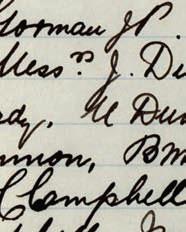 Gorman J.P.
Messrs. J. Du
ady, M Dun
nnon, B M
Campbell